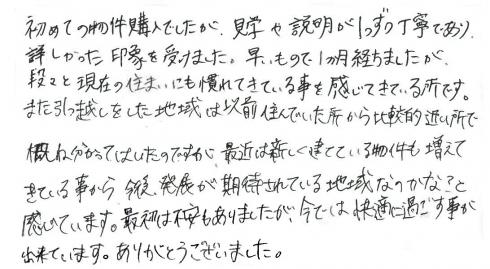 初めての物件購入でしたが、見学や説明が1つずつ丁寧であり、
詳しかった印象を受けました。早いもので1ヶ月経ちましたが、
段々と現在の住まいにも慣れてきている事を感じてきている所です。
また引っ越しをした地域は以前住んでいた所から比較的近い所で
概ね分かってはいたのですが、最近は新しく建てている物件も増えて
きている事から今後、発展が期待されている地域なのかな?と
感じています。最初は不安もありましたが、今では快適に過ごす事が
出来ています。ありがとうございました。